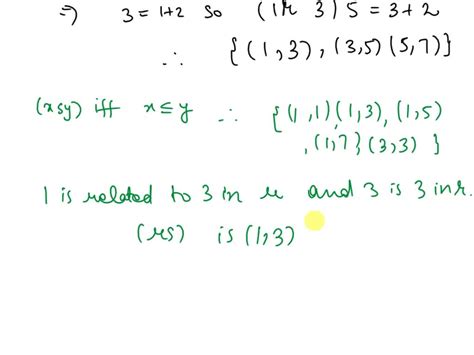 ⇒ 3 = 1+2 so (1 r 3) 5 = 3+2
∴ {(1,3), (3,5) (5,7)}
(x s y) iff x ≤ y ∴ {(1,1) (1,3), (1,5)
, (1,7} (3,3) }
1 is related to 3 in r and 3 is 3 in r.
(rs) is (1,3)